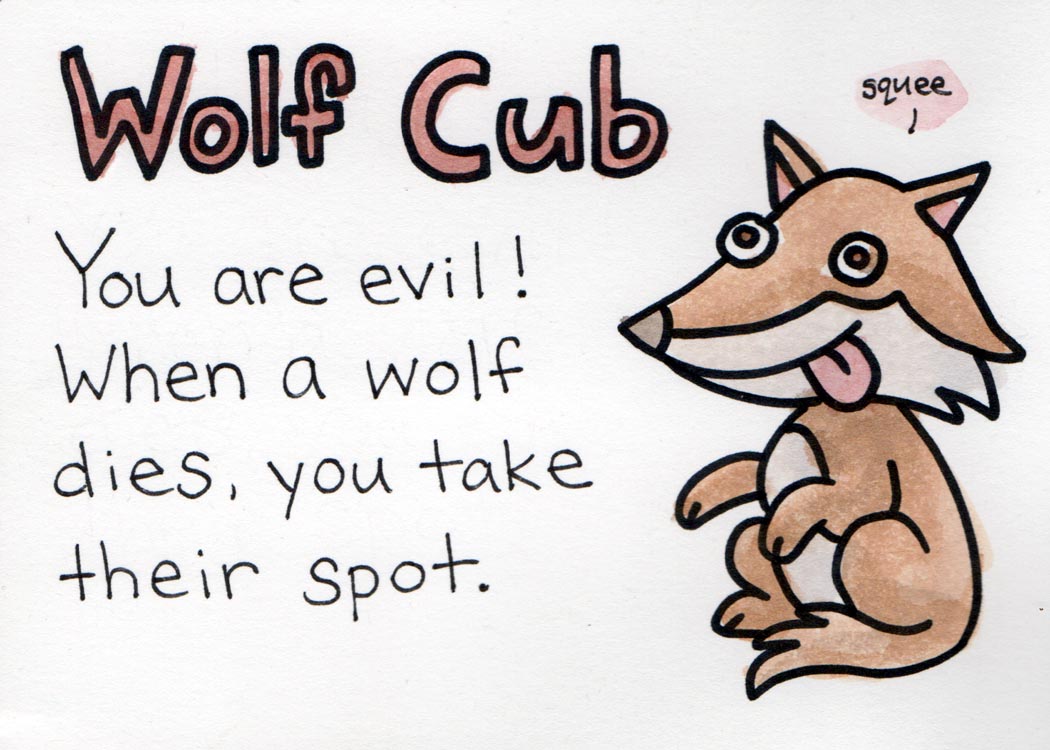 Wolf Cub
squee
You are evil!
When a wolf
dies, you take
their spot.